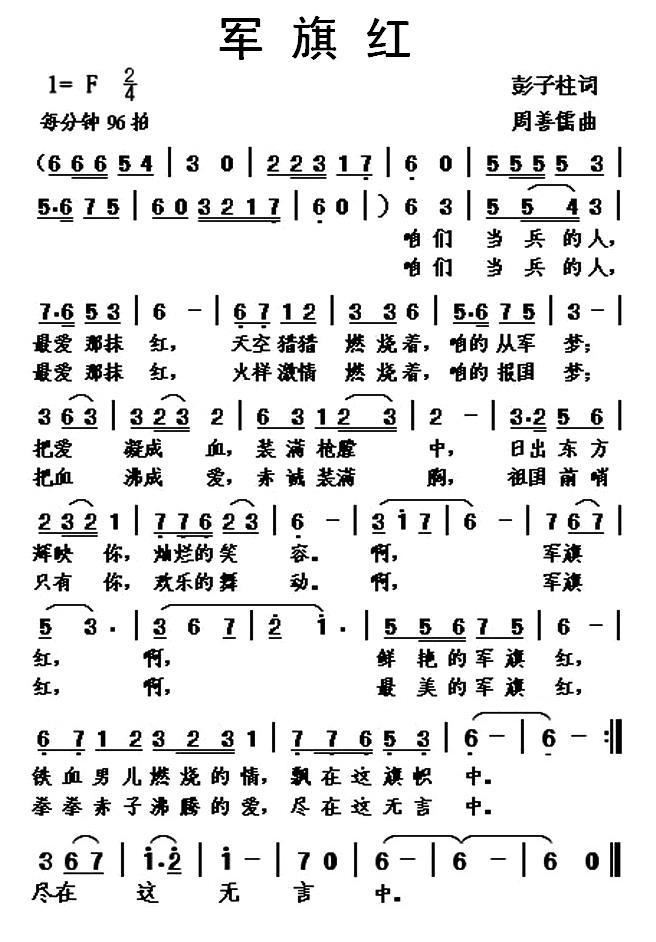 军旗红
1= F 2/4
彭子柱词
每分钟 96 拍
周善儒曲
(6 6 6 5 4 | 3 0 | 2 2 3 1 7 | 6 0 | 5 5 5 5 3 |
5·6 7 5 | 6 0 3 2 1 7 | 6 0 | ) 6 3 | 5 5 4 3 |
咱们 当兵的人,
咱们 当兵的人,
7·6 5 3 | 6 - | 6 7 1 2 | 3 3 6 | 5·6 7 5 | 3 - |
最爱那抹 红, 天空猎猎 燃烧着, 咱的从军 梦;
最爱那抹 红, 火样激情 燃烧着, 咱的报国 梦;
3 6 3 | 3 2 3 2 | 6 3 1 2 3 | 2 - | 3·2 5 6 |
把爱 凝成 血, 装满枪膛 中, 日出东方
把血 沸成 爱, 赤诚装满 胸, 祖国前哨
2 3 2 1 | 7 7 6 2 3 | 6 - | 3 1 7 | 6 - | 7 6 7 |
辉映 你, 灿烂的笑 容。 啊, 军旗
只有 你, 欢乐的舞 动。 啊, 军旗
5 3 · | 3 6 7 | 2 1 · | 5 5 6 7 5 | 6 - |
红, 啊, 鲜艳的军旗 红,
红, 啊, 最美的军旗 红,
6 7 1 2 3 2 3 1 | 7 7 6 5 3 | 6 - | 6 - :||
铁血男儿燃烧的情, 飘在这旗帜 中。
拳拳赤子沸腾的爱, 尽在这无言 中。
3 6 7 | 1·2 | 1 - | 7 0 | 6 - | 6 - | 6 0 ||
尽在 这 无 言 中。